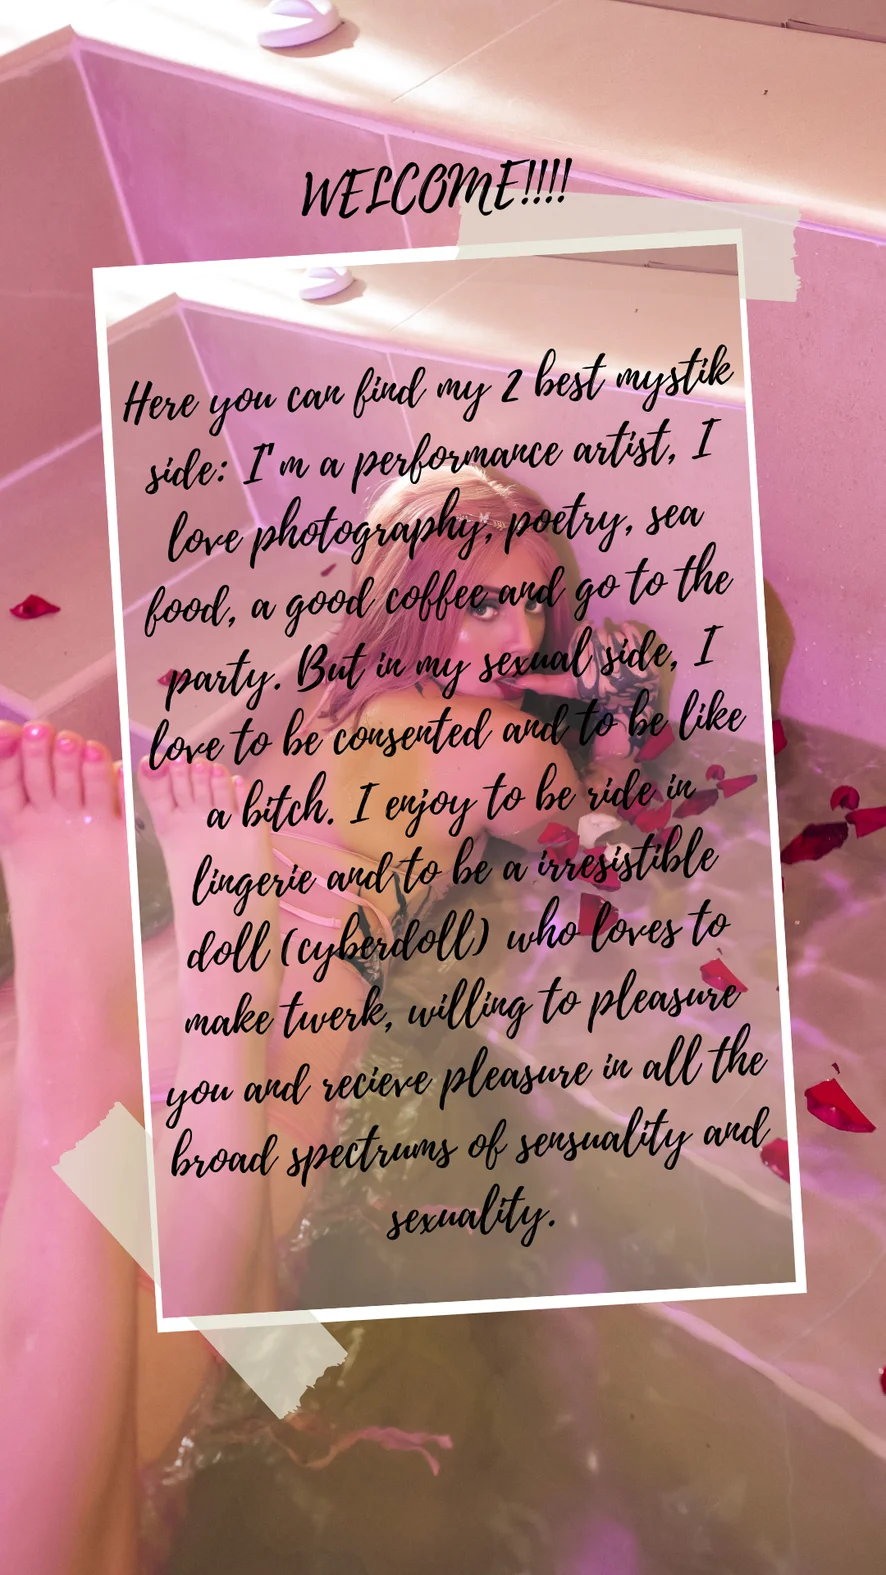 WELCOME!!!!
Here you can find my 2 best mystik
side: I'm a performance artist, I
love photography, poetry, sea
food, a good coffee and go to the
party. But in my sexual side, I
love to be consented and to be like
a bitch. I enjoy to be ride in
lingerie and to be a irresistible
doll (cyberdoll) who loves to
make twerk, willing to pleasure
you and recieve pleasure in all the
broad spectrums of sensuality and
sexuality.